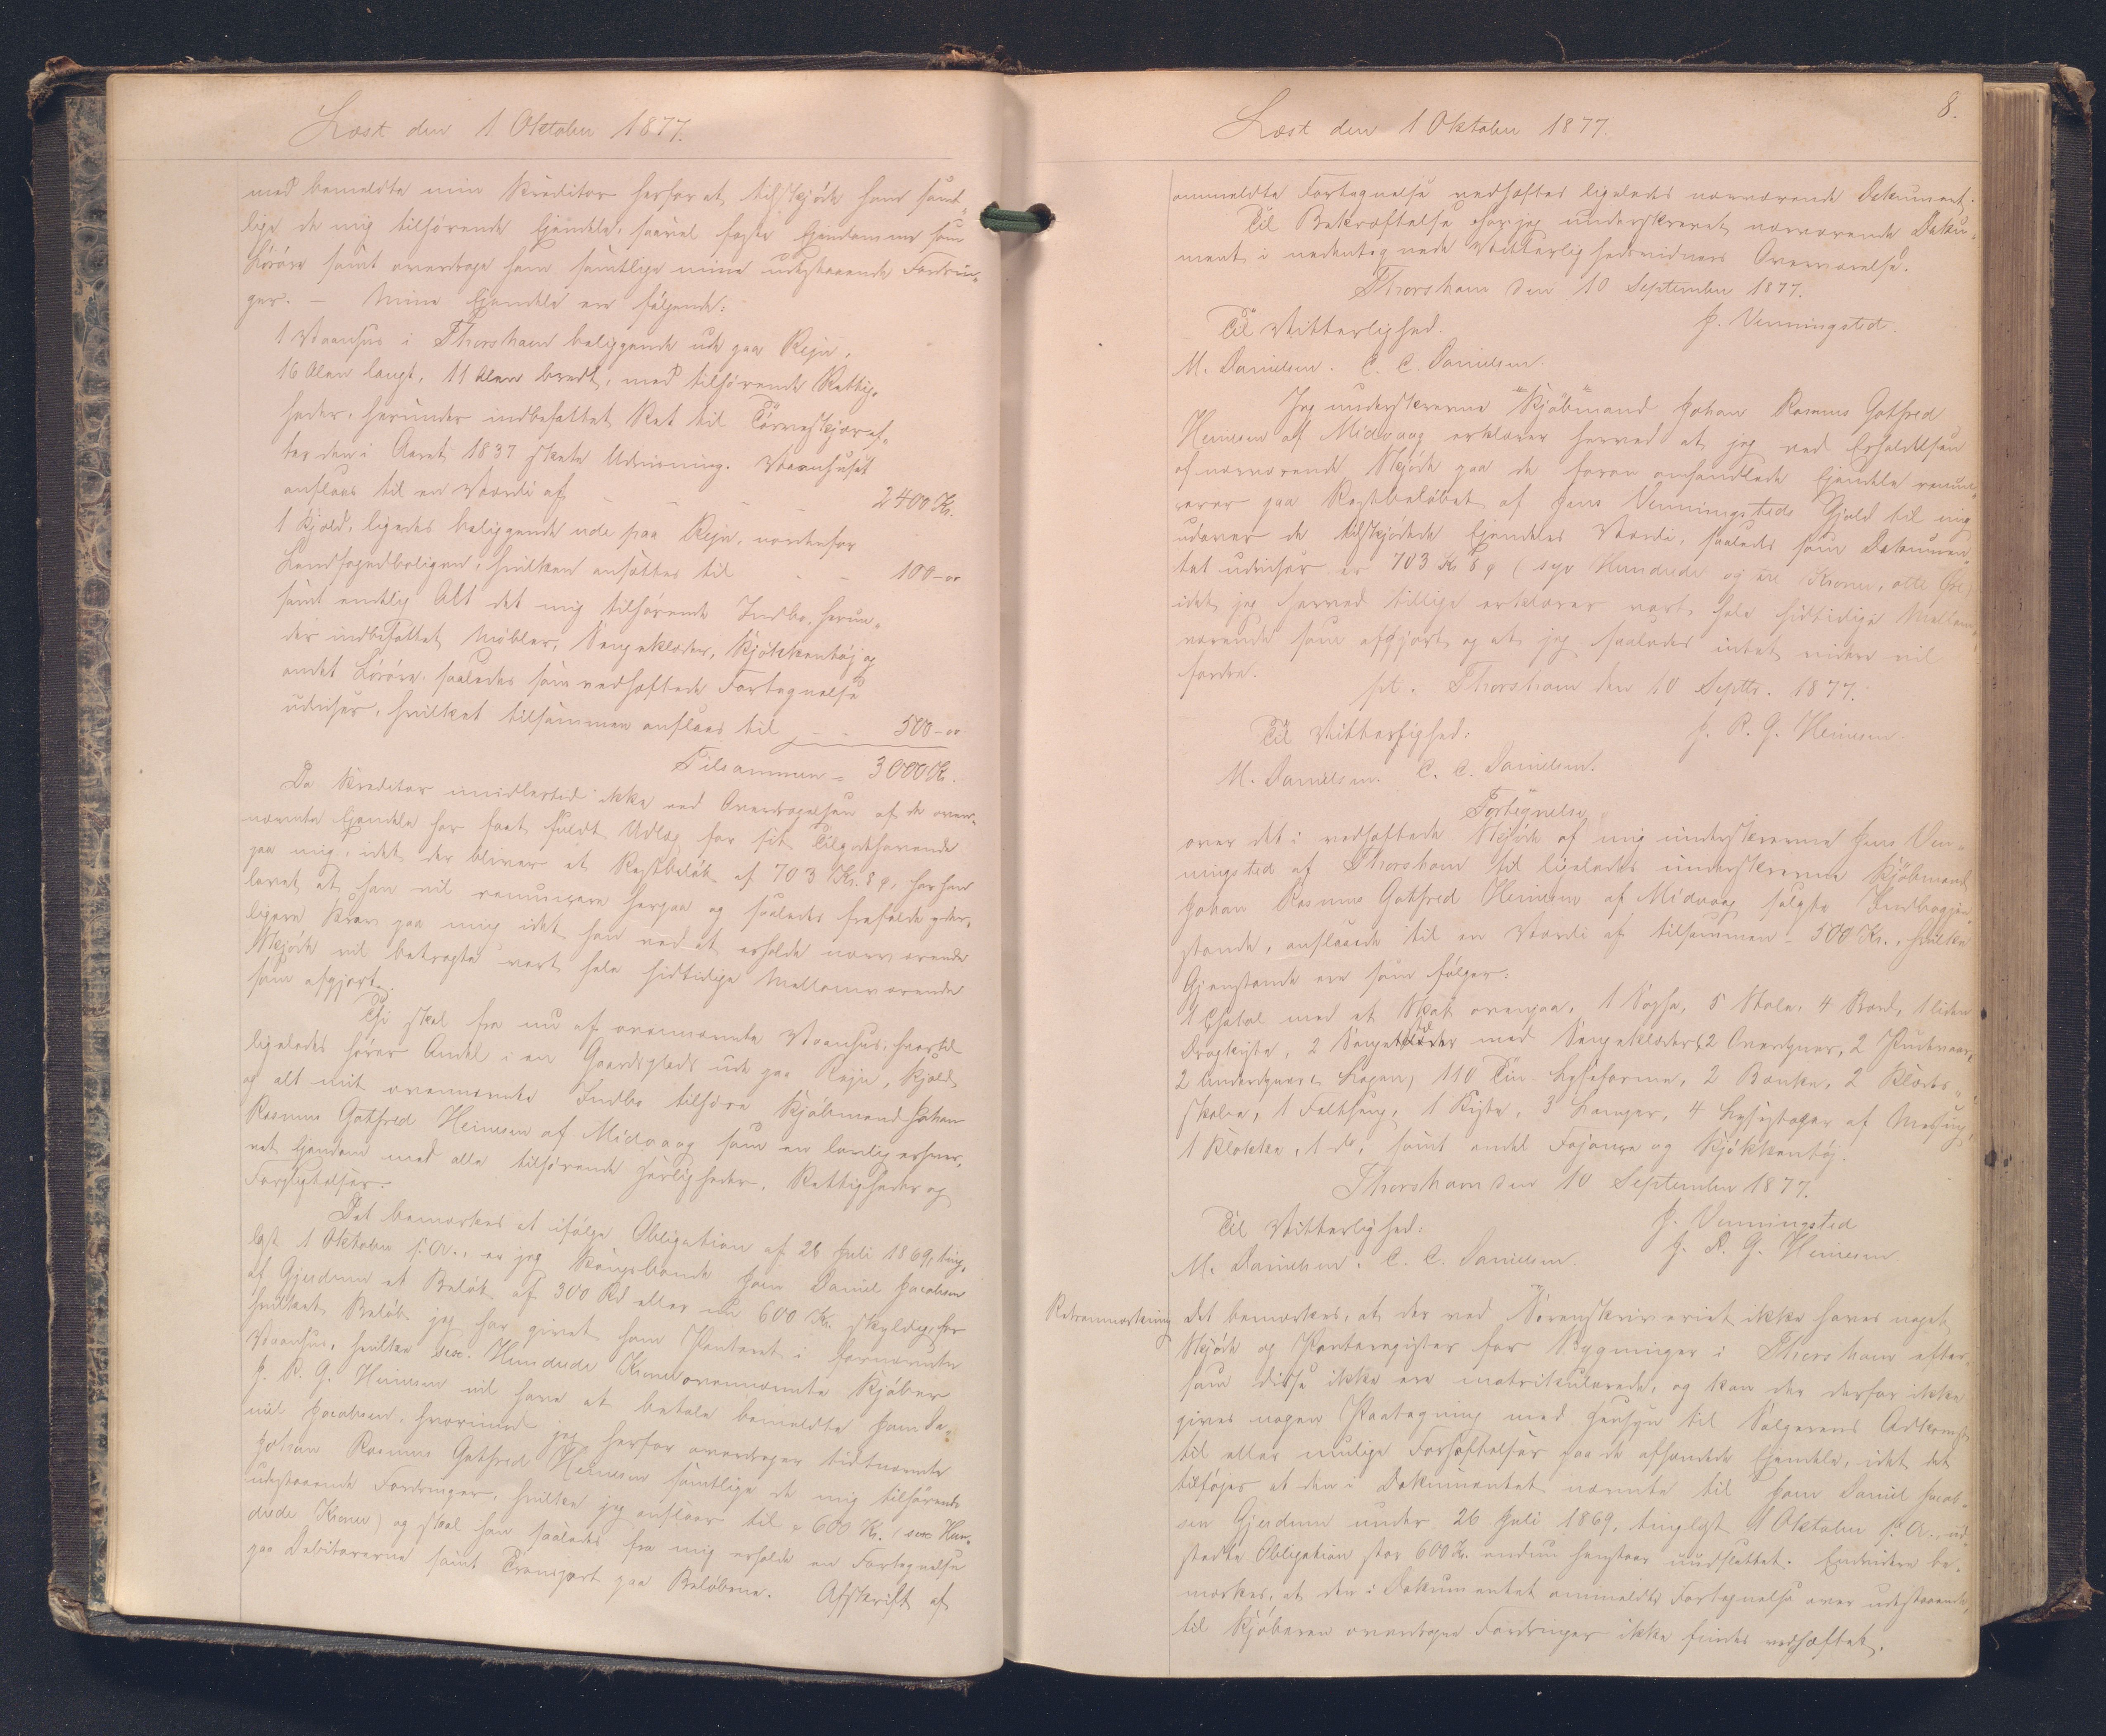 Læst den 1 Oktober 1877.
med bemeldte min Kreditor herfor at tilskjøde ham samt-
lige de mig tilhørende Ejendele, saavel faste Ejendomme som
Løsøre samt overdrage ham samtlige mine udestaaende Fordrin-
ger. – Mine Ejendele ere følgende:
1 Vaanhus i Thorshavn beliggende ude paa Rejn,
16 Alen langt, 11 Alen bredt, med tilhørende Rettig-
heder, herunder indbefattet Ret til Tørveskjær ef-
ter den i Aaret 1837 skete Udvisning. Vaanhuset
anslaaes til en Værdi af – – – 2400 Kr.
1 Kjald, ligeledes beliggende ude paa Rejn, nordenfor
Landfogedboligen, hvilken ansættes til – – 100 – "
samt endelig Alt det mig tilhørende Indbo, herun-
der indbefattet Møbler, Sengeklæder, Kjøkkentøj og
andet Løsøre, saaledes som vedhæftede Fortegnelse
udviser, hvilket tilsammen anslaaes til – – 500 – "
Tilsammen = 3000 Kr.
Da Kreditor imidlertid ikke ved Overdragelsen af de oven-
nævnte Ejendele har faaet fuldt Udlæg for sit Tilgodehavende
paa mig, idet der bliver et Restbeløb af 703 Kr. 8 Ø, har han
lovet at han vil renuncere herpaa og saaledes frafalde yder-
ligere Krav paa mig idet han ved at erholde nærværende
Skjøde vil betragte vort hele hidtidige Mellemværende
som afgjort.
Thi skal fra nu af ovennævnte Vaanhus, hvortil
ligeledes hører Andel i en Gaardsplads ude paa Rejn, Kjald
og alt mit ovennævnte Indbo tilhøre Kjøbmand Johan
Rasmus Gotfred Heinesen af Midvaag som en lovlig erhver-
vet Ejendom med alle tilhørende Herligheder, Rettigheder og
Forpligtelser.
Det bemærkes at ifølge Obligation af 26 Juli 1869, ting-
læst 1 Oktober s. A., er jeg Kongsbonde Hans Daniel Jacobsen
af Gjerdum et Beløb af 300 Rd eller nu 600 Kr. skyldig, for
hvilket Beløb jeg har givet ham Panteret i fornævnte
Vaanhus, hvilke sex Hundrede Kroner ovennævnte Kjøber
J. R. G. Heinesen vil have at betale bemeldte Hans Da-
niel Jacobsen, hvorimod jeg herfor overdrager tidtnævnte
Johan Rasmus Gotfred Heinesen samtlige de mig tilhørende
udestaaende Fordringer, hvilke jeg anslaaer til = 600 Kr. (sex Hun-
drede Kroner) og skal han saaledes fra mig erholde en Fortegnelse
paa Debitorerne samt Transport paa Beløbene. Afskrift af
8.
Læst den 1 Oktober 1877.
ommeldte Fortegnelse vedhæftes ligeledes nærværende Dokument.
Til Bekræftelse har jeg underskrevet nærværende Doku-
ment i undertegnede Vitterlighedsvidners Overværelse.
Thorshavn den 10 September 1877.
Til Vitterlighed. J. Venningsted.
M. Danielsen. C. C. Danielsen.
Jeg underskrevne Kjøbmand Johan Rasmus Gotfred
Heinesen af Midvaag erklærer herved at jeg ved Erholdelsen
af nærværende Skjøde paa de foran omhandlede Ejendele renun-
cerer paa Restbeløbet af Jens Venningsteds Gjæld til mig
udover de tilskjødede Ejendeles Værdi, saaledes som Dokumen-
tet udviser er 703 Kr 8 Ø (syv Hundrede og tre Kroner, otte Øre)
idet jeg herved tillige erklærer vort hele hidtidige Mellem-
værende som afgjort og at jeg saaledes intet videre vil
fordre.
pt. Thorshavn den 10 Septbr. 1877.
Til Vitterlighed: J. R. G. Heinesen.
M. Danielsen. C. C. Danielsen.
Fortegnelse
over det i vedhæftede Skjøde af mig underskrevne Jens Ven-
ningsted af Thorshavn til ligeledes underskrevne Kjøbmand
Johan Rasmus Gotfred Heinesen af Midvaag solgte Indbogjen-
stande, anslaaede til en Værdi af tilsammen = 500 Kr., hvilke
Gjenstande ere som følger:
1 Chatol med et Skab ovenpaa, 1 Sopha, 5 Stole, 4 Bord, 1 liden
Dragkiste, 2 Sengesteder med Sengeklæder (2 Overdyner, 2 Pudevaar,
2 Underdyner, Lagen) 110 Tin Lyseforme, 2 Bænke, 2 Klædes-
skabe, 1 Feltseng, 1 Kiste, 3 Lamper, 4 Lysestager af Messing,
1 Klokke, 1 do, samt endel Fajance og Kjøkkentøj.
Thorshavn den 10 September 1877.
Til Vitterlighed: J. Venningsted
M. Danielsen. C. C. Danielsen. J. R. G. Heinesen
Retsanmærkning Det bemærkes, at der ved Sorenskriveriet ikke haves noget
Skjøde og Panteregister for Bygninger i Thorshavn efter-
som disse ikke ere matrikulerede, og kan der derfor ikke
gives nogen Paategning med Hensyn til Sælgerens Adkomst
til eller mulige Forhæftelser paa de afhændede Ejendele, idet det
tilføjes at den i Dokumentet nævnte til Hans Daniel Jacob-
sen Gjerdum under 26 Juli 1869, tinglæst 1 Oktober s. A., ud-
stedte Obligation stor 600 Kr. endnu henstaar uudslettet. Endvidere be-
mærkes, at den i Dokumentet ommeldte Fortegnelse over udestaaende,
til Kjøberen overdragne Fordringer ikke findes vedhæftet.